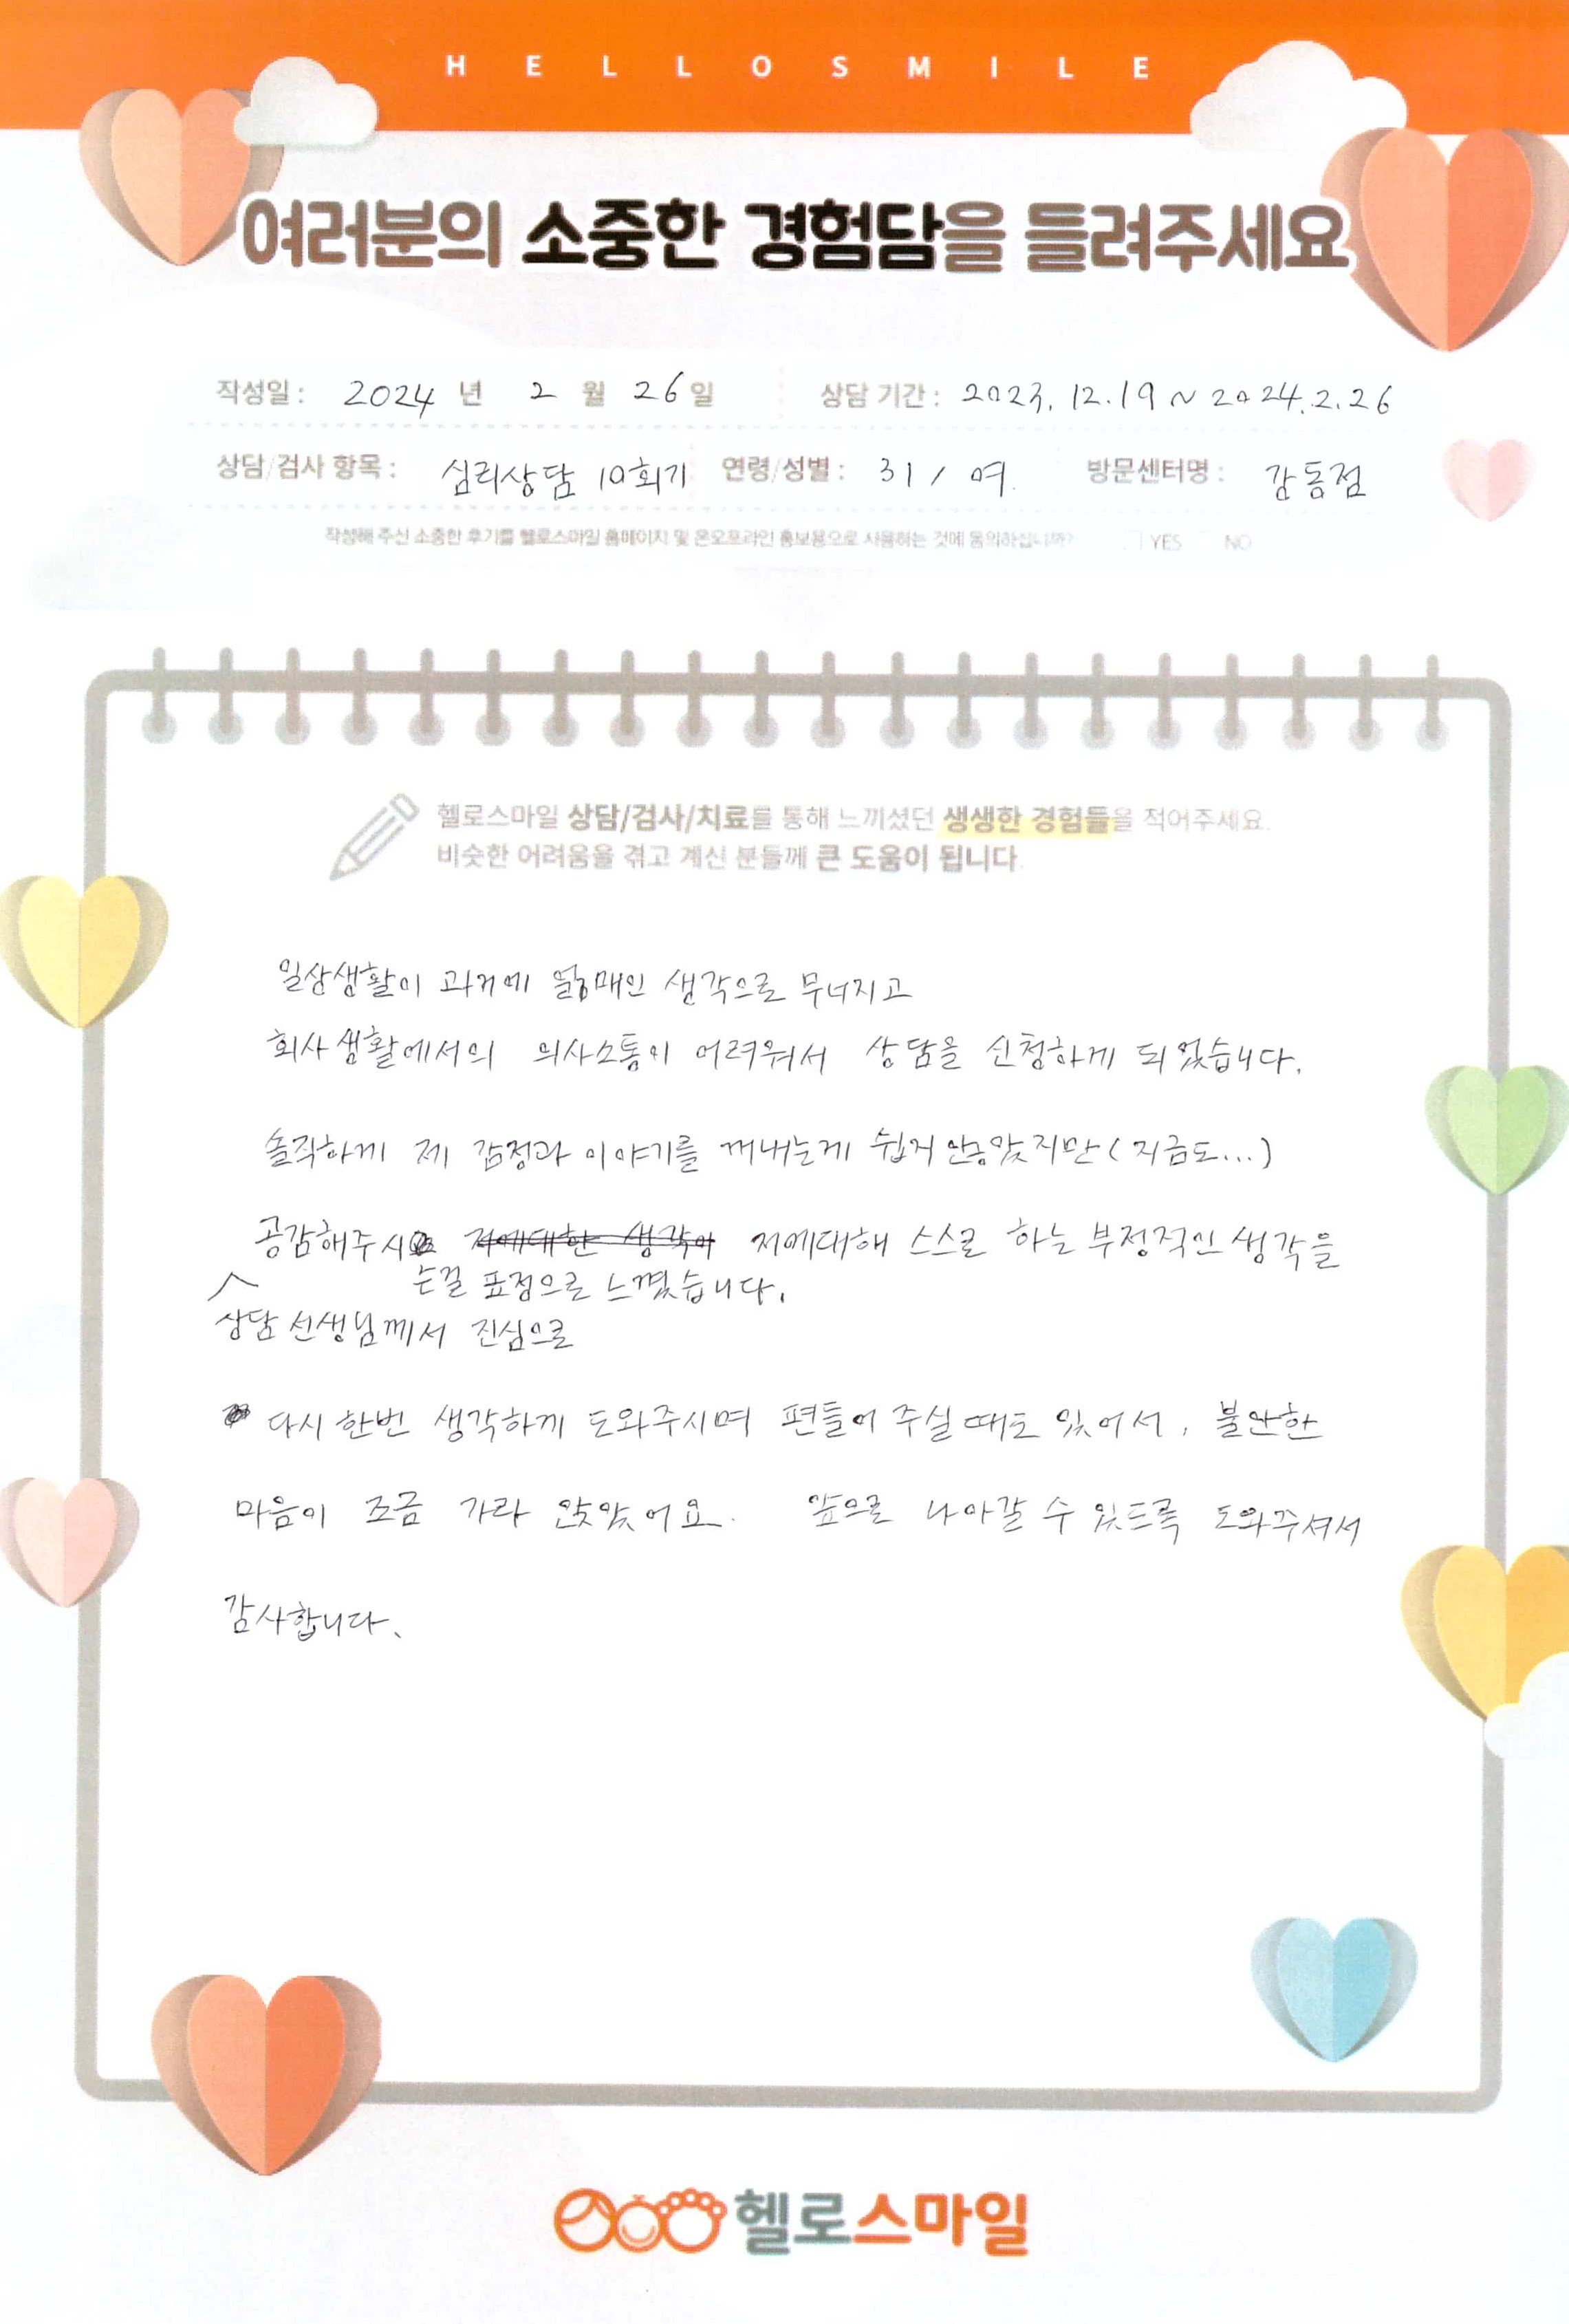 HELLOSMILE
여러분의 소중한 경험담을 들려주세요
작성일 : 2024 년 2 월 26 일 상담 기간 : 2023. 12. 19 ~ 2024. 2. 26
상담/검사 항목 : 심리상담 10회기 연령/성별 : 31 / 여. 방문센터명 : 강동점
작성해 주신 소중한 후기를 헬로스마일 홈페이지 및 온오프라인 홍보용으로 사용하는 것에 동의하십니까? YES NO
헬로스마일 상담/검사/치료를 통해 느끼셨던 생생한 경험들을 적어주세요.
비슷한 어려움을 겪고 계신 분들께 큰 도움이 됩니다.
일상생활이 과거에 얽매인 생각으로 무너지고
회사생활에서의 의사소통이 어려워서 상담을 신청하게 되었습니다.
솔직하게 제 감정과 이야기를 꺼내는게 쉽지 않았지만 (지금도...)
공감해주시 저에대한 생각이 저에대해 스스로 하는 부정적인 생각을
는걸 표정으로 느꼈습니다.
상담 선생님께서 진심으로
다시 한번 생각하게 도와주시며 편들어 주실때도 있어서, 불안한
마음이 조금 가라 앉았어요. 앞으로 나아갈 수 있도록 도와주셔서
감사합니다.
헬로스마일